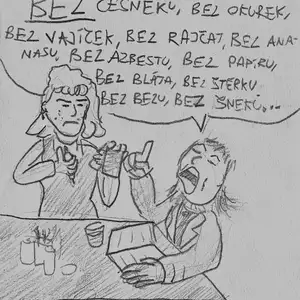 BEZ ČESNEKU, BEZ OKUREK,
BEZ VAJÍČEK, BEZ RAJČAT, BEZ ANA-
NASU, BEZ AZBESTU, BEZ PAPÍRU,
BEZ BLÁTA, BEZ ŠTĚRKU,
BEZ BEZU, BEZ ŠNEKŮ,...